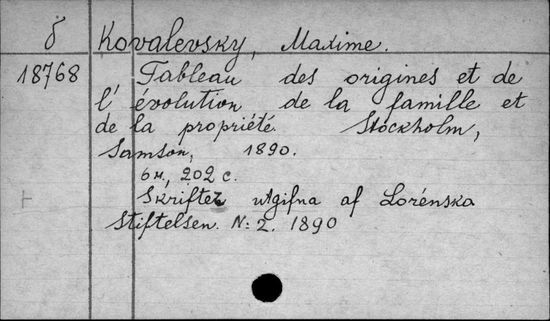 δ Kovalevsky, Maxime.
18768 Tableau des origines et de
l'évolution de la famille et
de la propriété. Stockholm,
Samson, 1890.
6н., 202 с.
Skrifter utgifna af Lorénska
Stiftelsen. N: 2. 1890